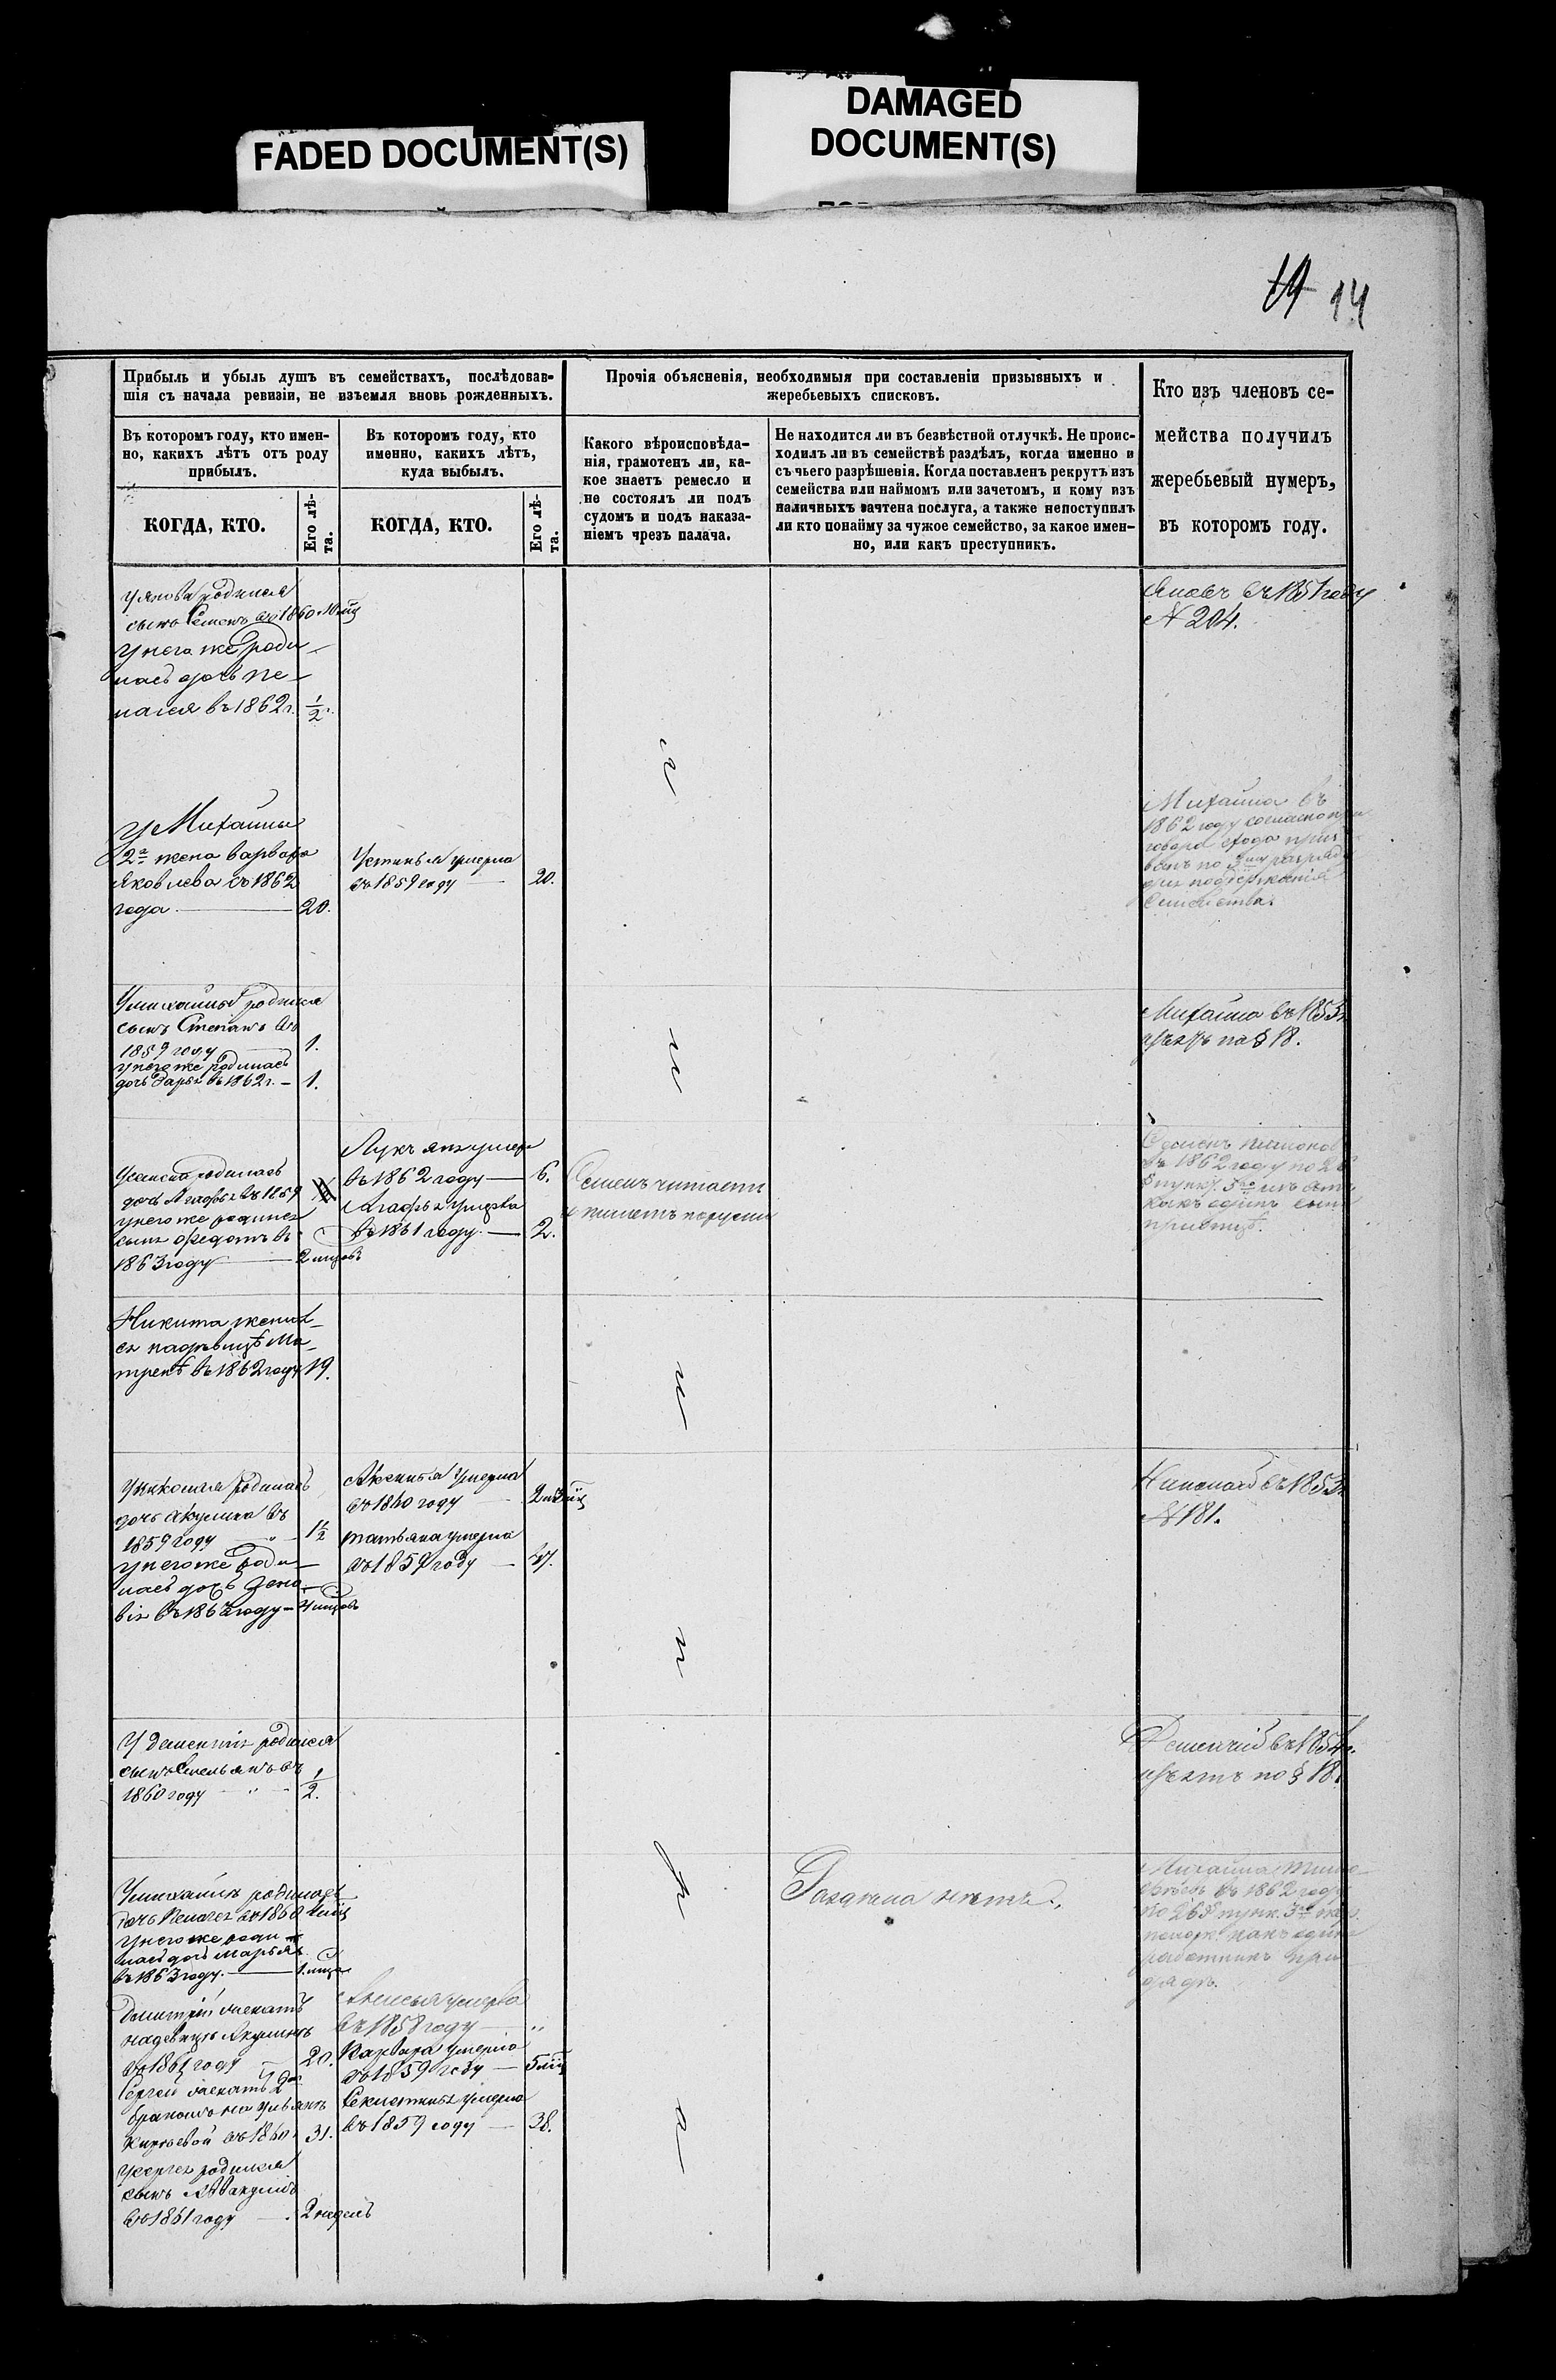 FADED DOCUMENT(S)
DAMAGED
DOCUMENT(S)
14
Прибыль и убыль душъ въ семействахъ, послѣдовав-
шія съ начала ревизіи, не изъемля вновь рожденныхъ.
Прочія объясненія, необходимыя при составленіи призывныхъ и
жеребьевыхъ списковъ.
Кто изъ членовъ се-
мейства получилъ
жеребьевый нумеръ,
въ которомъ году.
Въ которомъ году, кто имен-
но, какихъ лѣтъ отъ роду
прибылъ.
Въ которомъ году, кто
именно, какихъ лѣтъ,
куда выбылъ.
Какого вѣроисповѣда-
нія, грамотенъ ли, ка-
кое знаетъ ремесло и
не состоялъ ли подъ
судомъ и подъ наказа-
ніемъ чрезъ палача.
Не находится ли въ безвѣстной отлучкѣ. Не проис-
ходилъ ли въ семействѣ раздѣлъ, когда именно и
съ чьего разрѣшенія. Когда поставленъ рекрутъ изъ
семейства или наймомъ или зачетомъ, и кому изъ
наличныхъ зачтена послуга, а также непоступилъ
ли кто понайму за чужое семейство, за какое имен-
но, или какъ преступникъ.
КОГДА, КТО.
Его лѣ-
та.
КОГДА, КТО.
Его лѣ-
та.
У Якова родился
сынъ Семенъ въ 1860
У него же роди-
лась дочь Пе-
лагея въ 1862 г. 1/2 г.
Яковъ въ 1851 году
№ 204.
У Михайлы
2я жена Варвара
Яковлева съ 1862
года 20.
Устинья умерла
въ 1859 году 20.
Михайла въ
1862 году согласно при
говора схода приз
ванъ по разряду
для подержанія
Семейства.
У Михайлы родился
сынъ Степанъ въ
1859 году 1.
у него же родилась
дочь Дарья въ 1862 г. 1.
Михайла въ 1853 г.
изъятъ по § 18.
У Семена родилась
дочь Агафья въ 1859
у него же родился
сынъ Федотъ въ
1863 году 2 мцовъ
умеръ
въ 1862 году 6.
Агафья умерла
въ 1861 году 2.
Семенъ читаетъ
и пишетъ порусски
въ 1862 году по 26
§ пункт. 3
какъ одинъ сынъ
Никита женил-
ся на дѣвицѣ Ма-
тренѣ въ 1862 году 19.
У Николая родилась
дочь Акулина въ
1859 году 1 1/2
У него же роди-
лась дочь Зено-
вія въ году 4 мцовъ
Аксинья умерла
въ 1860 году
Татьяна умерла
въ 1859 году
Николай въ 1853 г.
№ 181.
У Дементія родился
сынъ Емельянъ въ
1860 году 1/2.
Дементій въ 1854 г.
изъятъ по § 18.
У Михайлы родилась
дочь Пелагея въ 1860
У него же роди-
лась дочь Марья
въ 1863 году. 1 мца
Раздѣла нѣтъ.
Михайла
въ 1862 году
по 26 § пунк. 3
какъ один
работникъ при
Дмитрій женатъ
на дѣвицѣ Акулинѣ
въ 1861 году 20.
Сергей женатъ 2мъ
бракомъ на Ульянѣ
въ 1860 31.
У Сергея родился
сынъ Авакумъ
въ 1861 году 2 недель
умерла
въ 1858 году
Варвара умерла
въ 1859 году
умерла
въ 1859 году 38.